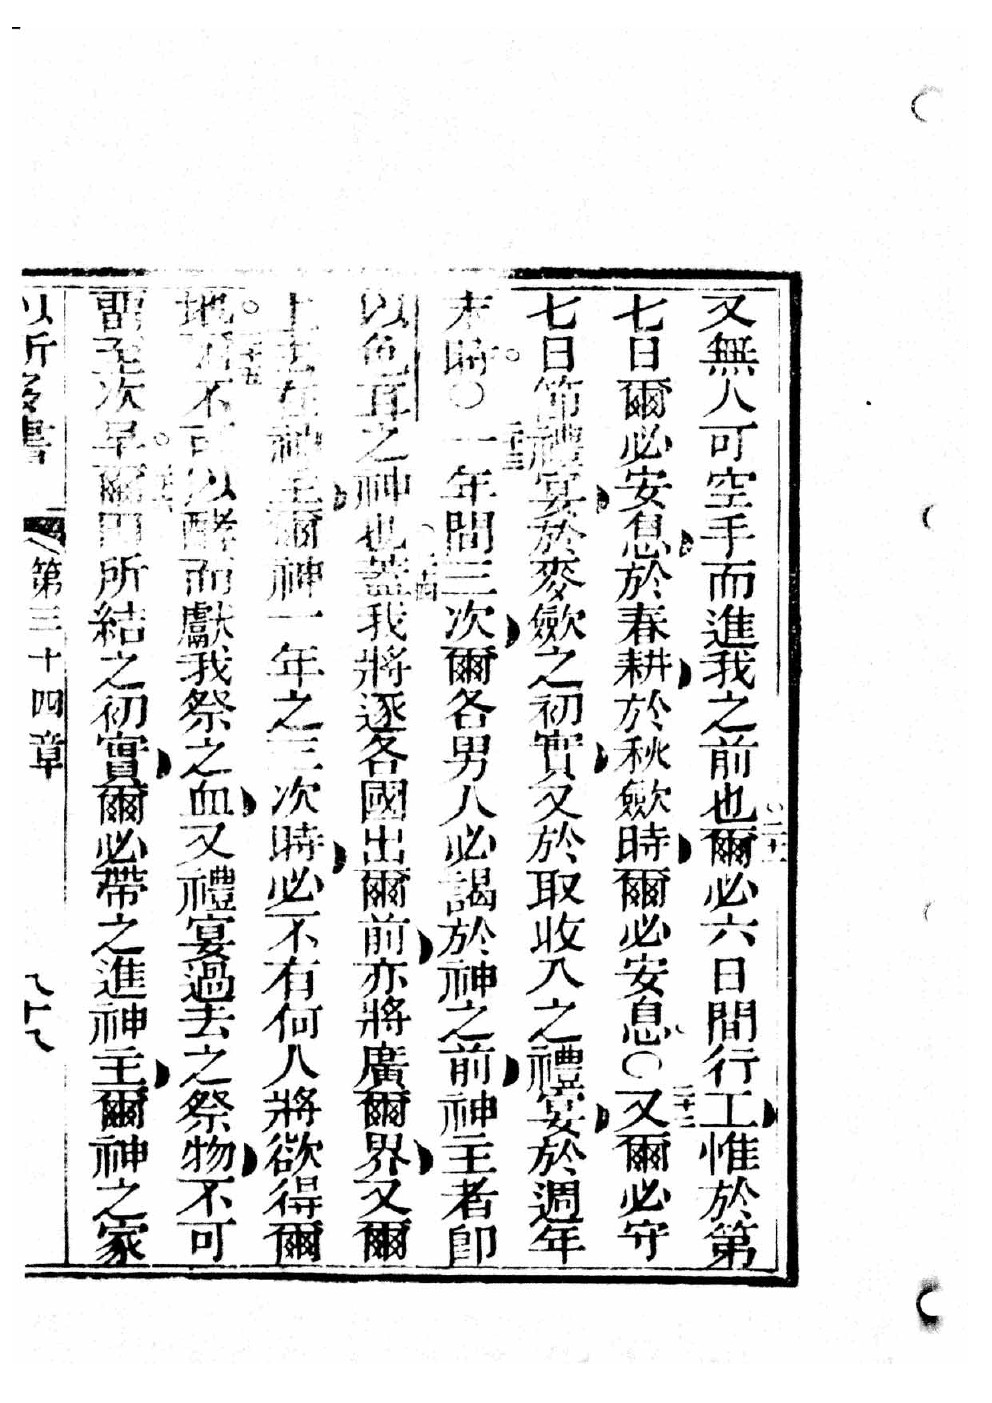 又無人可空手而進我之前也○二十一爾必六日間行工惟於第
七日爾必安息於春耕於秋斂時爾必安息○二十二又爾必守
七日節禮宴於麥斂之初實又於取收入之禮宴於週年
末時○二十三一年間三次爾各男人必謁於神之前神主者即
以色耳之神也○二十四蓋我將逐各國出爾前亦將廣爾界又爾
上去在神主爾神一年之三次時必不有何人將欲得爾
地○二十五爾不可以酵而獻我祭之血又禮宴過去之祭物不可
留至次早○爾田所結之初實爾必帶之進神主爾神之家
以所多書 第三十四章 八十八